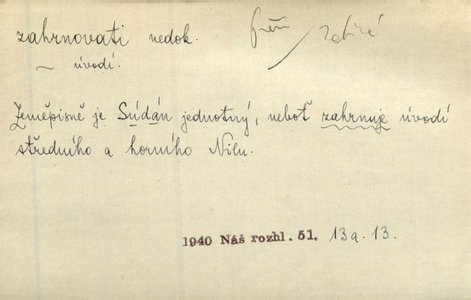 zahrnovati nedok.
~ úvodí.
Zeměpisně je Súdán jednotný, neboť zahrnuje úvodí
středního a horního Nilu.
1940 Náš rozhl. 51. 13a.13.